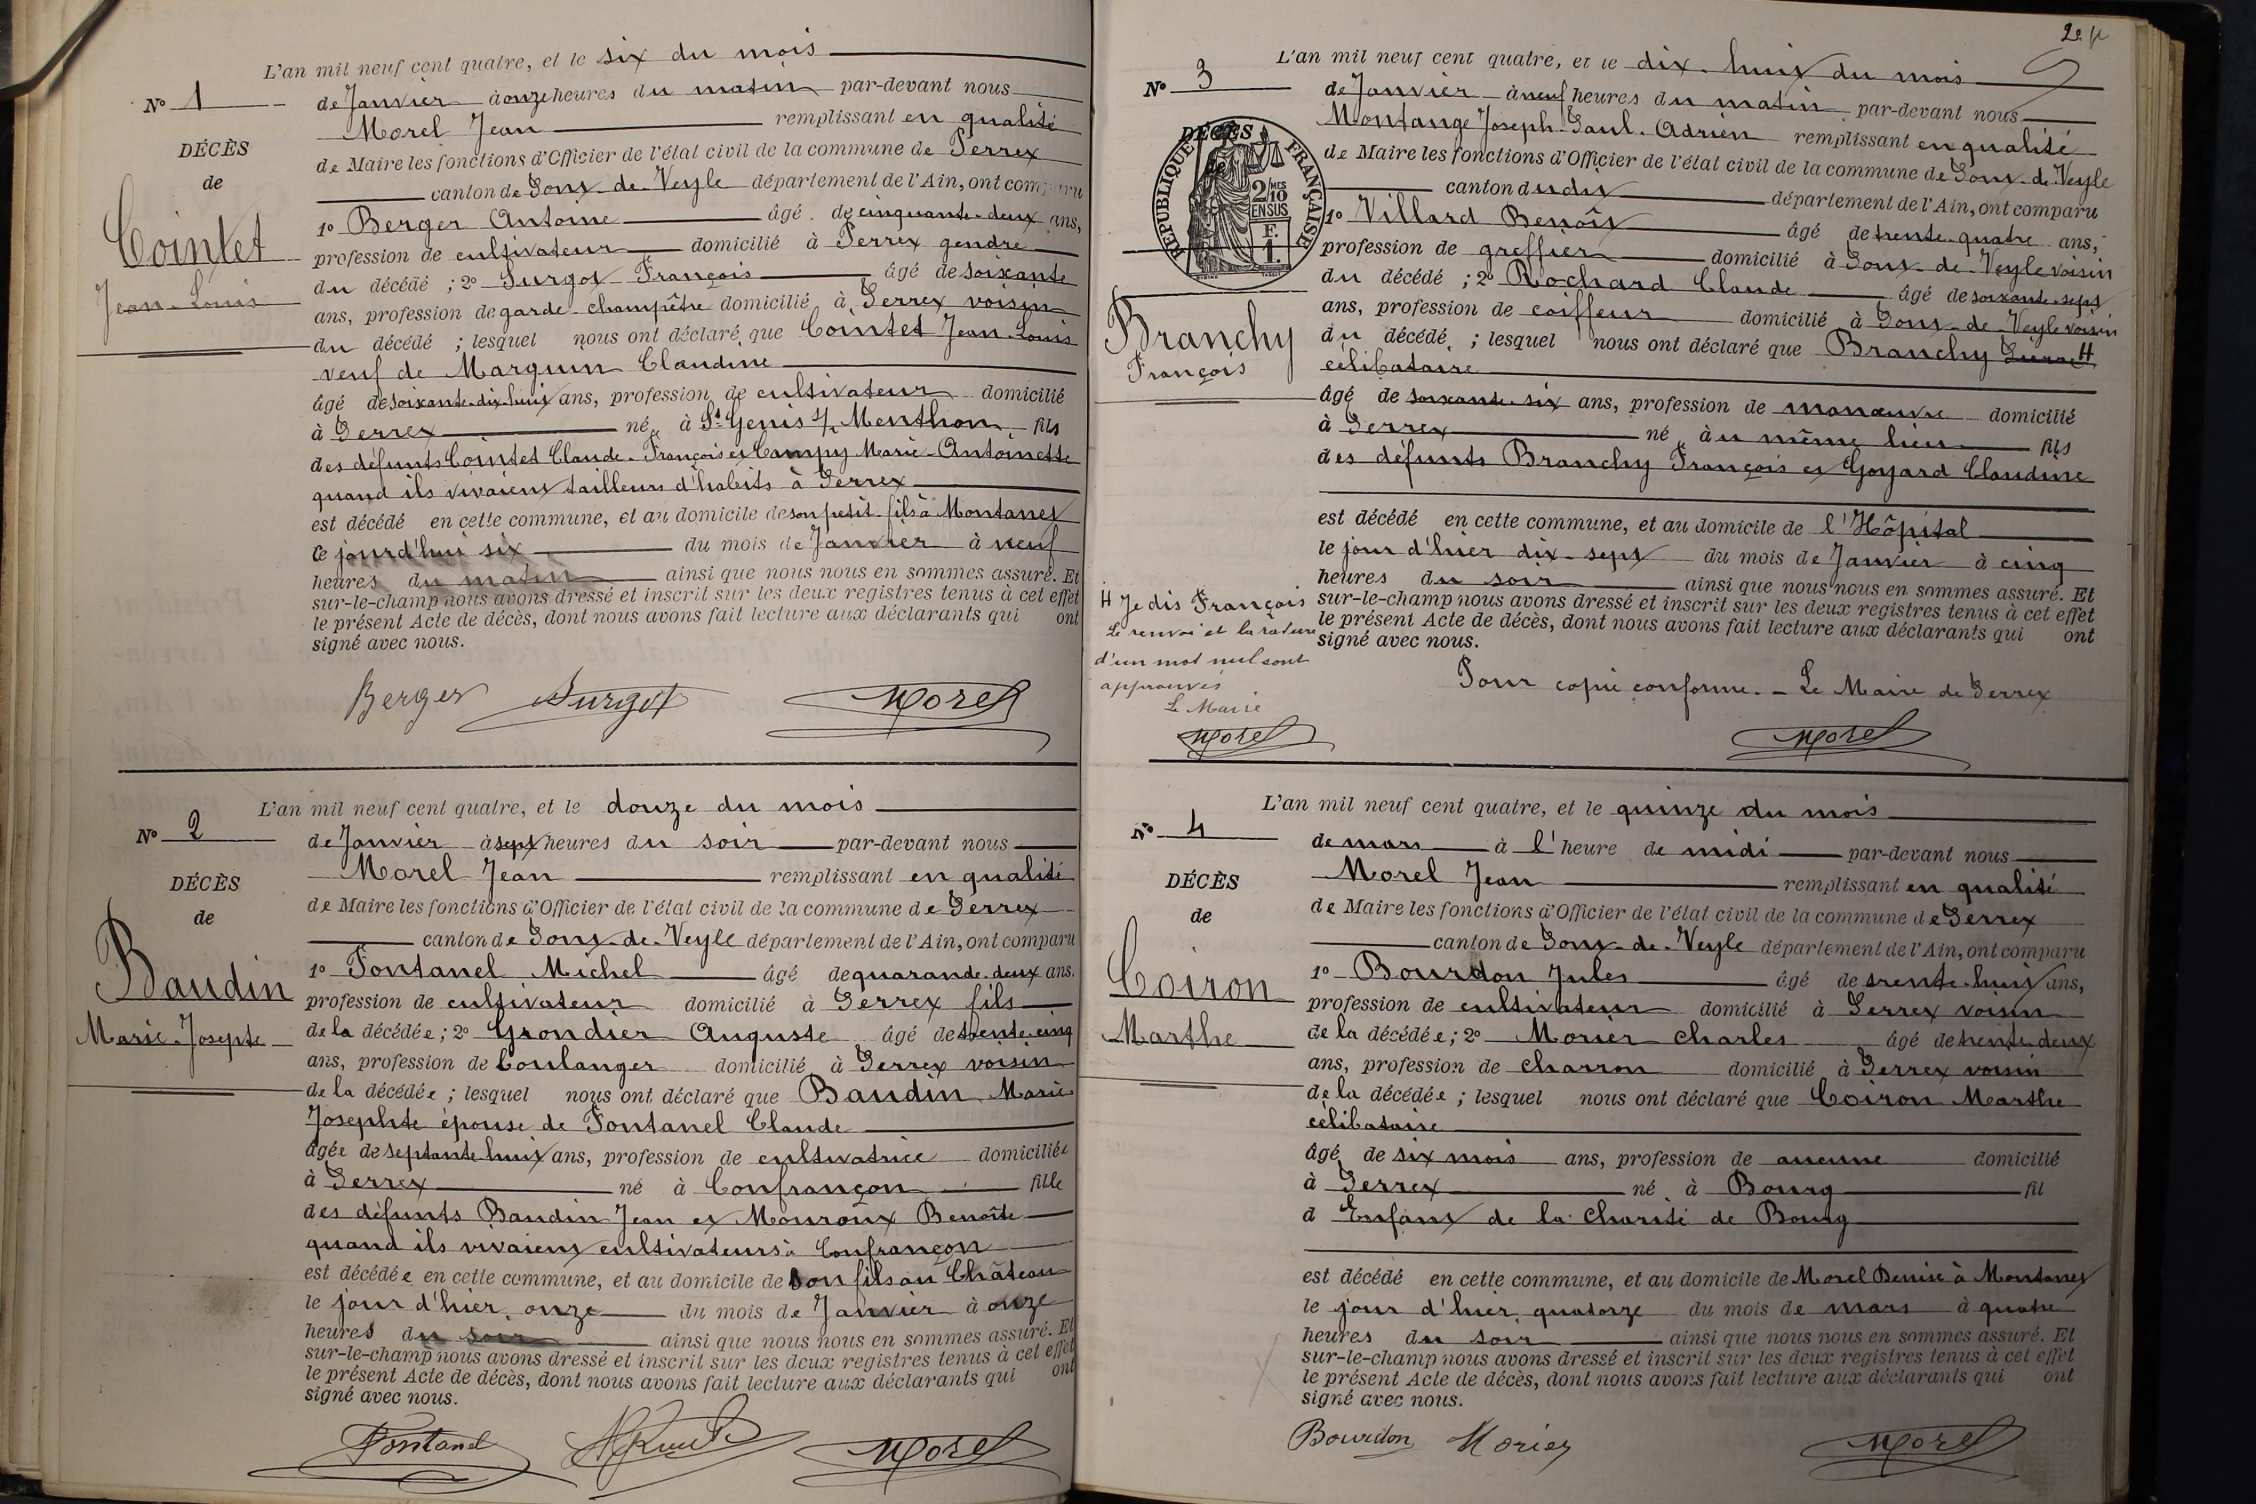 L'an mil neuf cent quatre, et le six du mois
N° 1
de Janvier à onze heures du matin par-devant nous
Morel Jean remplissant en qualité
DÉCÈS
de Maire les fonctions d'Officier de l'état civil de la commune de Perrex
de
canton de Pont-de-Veyle département de l'Ain, ont comparu
Cointet
1° Berger Antoine âgé de cinquante-deux ans,
profession de cultivateur domicilié à Perrex gendre
Jean-Louis
du décédé ; 2° Surgot François âgé de soixante
ans, profession de garde-champêtre domicilié à Perrex voisin
du décédé ; lesquel nous ont déclaré que Cointet Jean-Louis
veuf de Marguin Claudine
âgé de soixante-dix-huit ans, profession de cultivateur domicilié
à Perrex né à St Genis s/ Menthon fils
des défunts Cointet Claude-François et Campy Marie-Antoinette
quand ils vivaient tailleurs d'habits à Perrex
est décédé en cette commune, et au domicile de son petit-fils à Montanet
Ce jourd'hui six du mois de Janvier à neuf
heures du matin ainsi que nous nous en sommes assuré. Et
sur-le-champ nous avons dressé et inscrit sur les deux registres tenus à cet effet
le présent Acte de décès, dont nous avons fait lecture aux déclarants qui ont
signé avec nous.
Berger Surgot Morel
L'an mil neuf cent quatre, et le douze du mois
N° 2
de Janvier à sept heures du soir par-devant nous
Morel Jean remplissant en qualité
DÉCÈS
de Maire les fonctions d'Officier de l'état civil de la commune de Perrex
de
canton de Pont-de-Veyle département de l'Ain, ont comparu
Baudin
1° Fontanel Michel âgé de quarande-deux ans.
profession de cultivateur domicilié à Perrex fils
Marie-Josephte
de la décédée ; 2° Grondier Auguste âgé de trente-cinq
ans, profession de boulanger domicilié à Perrex voisin
de la décédée ; lesquel nous ont déclaré que Baudin Marie
Josephte épouse de Fontanel Claude
âgée de septante-huit ans, profession de cultivatrice domiciliée
à Perrex né à Confrançon fille
des défunts Baudin Jean et Mouroux Benoîte
quand ils vivaient cultivateurs à Confrançon
est décédée en cette commune, et au domicile de son fils au Château
le jour d'hier onze du mois de Janvier à onze
heures du soir ainsi que nous nous en sommes assuré. Et
sur-le-champ nous avons dressé et inscrit sur les deux registres tenus à cet effet
le présent Acte de décès, dont nous avons fait lecture aux déclarants qui ont
signé avec nous.
Fontanel Morel
L'an mil neuf cent quatre, et le dix-huit du mois
N° 3
de Janvier à neuf heures du matin par-devant nous
Montange Joseph-Paul-Adrien remplissant en qualité
DÉCÈS
de
RÉPUBLIQUE FRANÇAISE
2/10 MES
EN SUS
F.
1.
de Maire les fonctions d'Officier de l'état civil de la commune de Pont-de-Veyle
canton dudit département de l'Ain, ont comparu
1° Villard Benoît âgé de trente-quatre ans,
profession de greffier domicilié à Pont-de-Veyle voisin
du décédé ; 2° Rochard Claude âgé de soixante-sept
ans, profession de coiffeur domicilié à Pont-de-Veyle voisin
Branchy
François
du décédé ; lesquel nous ont déclaré que Branchy Pierre H
célibataire
âgé de soixante-six ans, profession de manœuvre domicilié
à Perrex né au même lieu fils
des défunts Branchy François et Goyard Claudine
est décédé en cette commune, et au domicile de l'Hôpital
le jour d'hier dix-sept du mois de Janvier à cinq
heures du soir ainsi que nous nous en sommes assuré. Et
sur-le-champ nous avons dressé et inscrit sur les deux registres tenus à cet effet
le présent Acte de décès, dont nous avons fait lecture aux déclarants qui ont
signé avec nous.
H Je dis François
Le renvoi et la rature
d'un mot nul sont
approuvés
Le Maire
Morel
Pour copie conforme. – Le Maire de Perrex
Morel
L'an mil neuf cent quatre, et le quinze du mois
N° 4
de mars à l'heure de midi par-devant nous
Morel Jean remplissant en qualité
DÉCÈS
de Maire les fonctions d'Officier de l'état civil de la commune de Perrex
de
canton de Pont-de-Veyle département de l'Ain, ont comparu
Coiron
1° Bourdon Jules âgé de trente-huit ans,
profession de cultivateur domicilié à Perrex voisin
Marthe
de la décédée ; 2° Morier Charles âgé de trente-deux
ans, profession de charron domicilié à Perrex voisin
de la décédée ; lesquel nous ont déclaré que Coiron Marthe
célibataire
âgé de six mois ans, profession de aucune domicilié
à Perrex né à Bourg fil
d Enfant de la Charité de Bourg
est décédé en cette commune, et au domicile de Morel Denise à Montanet
le jour d'hier quatorze du mois de mars à quatre
heures du soir ainsi que nous nous en sommes assuré. Et
sur-le-champ nous avons dressé et inscrit sur les deux registres tenus à cet effet
le présent Acte de décès, dont nous avons fait lecture aux déclarants qui ont
signé avec nous.
Bourdon Morier Morel